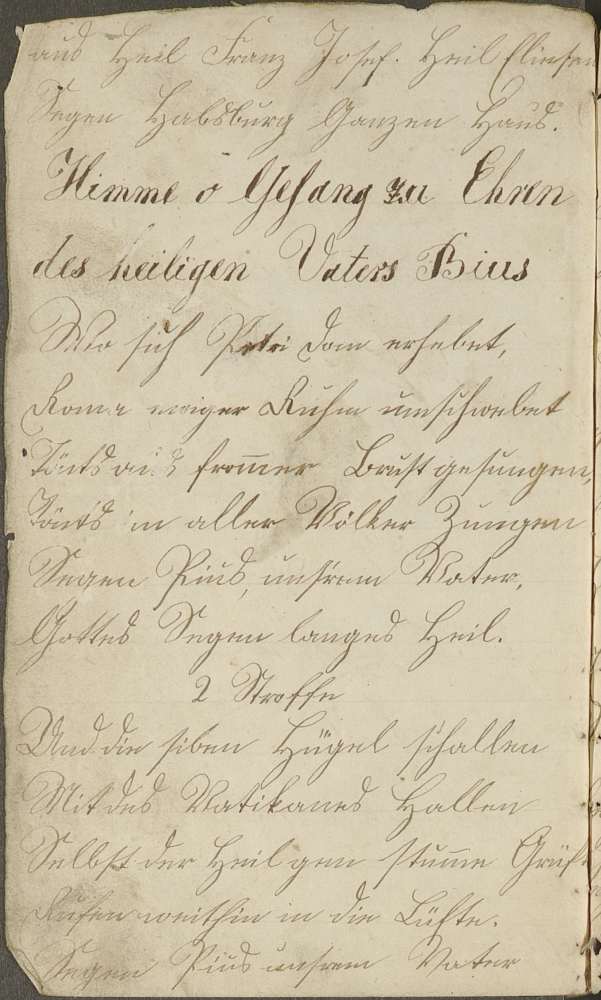 aus Heil Franz Josef. Heil Eliesen
Segen Habsburg Ganzen Haus.
Himme o Gesang zu Ehren
des heiligen Vaters Bius
Wo sich Petri Dom erhebet,
Roms ewiger Ruhm umschwebet
Tönts aus from̅er Brust gesungen,
Tönts in aller Völker Zungen
Segen Pius, unsrem Vater,
Gottes Segen langes Heil.
2 Stroffe
Und die siben Hügel schallen
Mit des Vatikanes Hallen
Selbst der Heilgen stum̅e Grüft
Rufen weithin in die Lüfte.
Segen Pius unsrem Vater